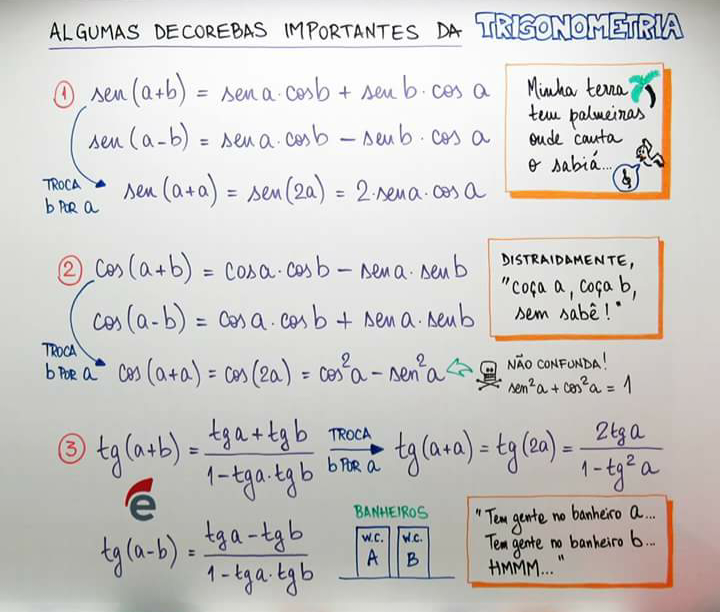 ALGUMAS DECOREBAS IMPORTANTES DA TRIGONOMETRIA
① sen(a+b) = sen a · cos b + sen b · cos a
sen(a-b) = sen a · cos b - sen b · cos a
TROCA
b POR a
sen(a+a) = sen(2a) = 2·sen a · cos a
Minha terra
tem palmeiras
onde canta
o sabiá...
② cos(a+b) = cos a · cos b - sen a · sen b
cos(a-b) = cos a · cos b + sen a · sen b
TROCA
b POR a
cos(a+a) = cos(2a) = cos²a - sen²a
DISTRAIDAMENTE,
"coça a, coça b,
sem sabê!"
NÃO CONFUNDA!
sen²a + cos²a = 1
③ tg(a+b) = tg a + tg b / 1 - tg a · tg b
TROCA
b POR a
tg(a+a) = tg(2a) = 2tg a / 1 - tg² a
e
tg(a-b) = tg a - tg b / 1 - tg a · tg b
BANHEIROS
W.C. A
W.C. B
"Tem gente no banheiro a...
Tem gente no banheiro b...
HMMM..."